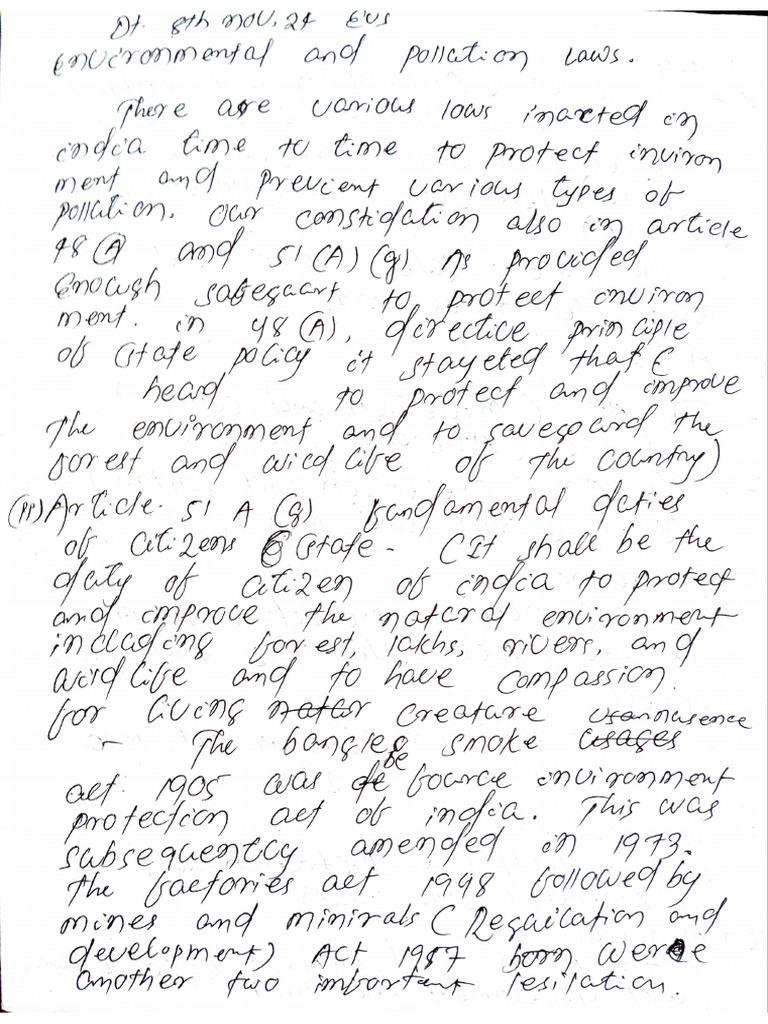 Dt. 8th nov, 24 Evs
Environmental and pollution laws.
There are various lows inacted in
india time to time to protect inviron
ment and previent various types of
pollution. our constidation also in article
48 (A) and 51 (A) (g) As provided
Enough safegaart to protect environ
ment. in 48 (A), directive principle
of (state policy it stayeted that (
heard to protect and improve
The environment and to savegoard the
forest and wild life of the country)
(ii) Article. 51 A (g) fundamental duties
of citizens (state - (It shall be the
duty of citizen of india to protect
and improve the natural environment
including forest, lakhs, rivers, and
wild life and to have compassion
for living natur creature nusence
- The bangles smoke usages
act 1905 was de be fource environment
protection act of india. This was
subsequently amended in 1973.
The factories act 1948 followed by
mines and minirals (Regulation and
development) Act 1957 born were
another two important lesilation.